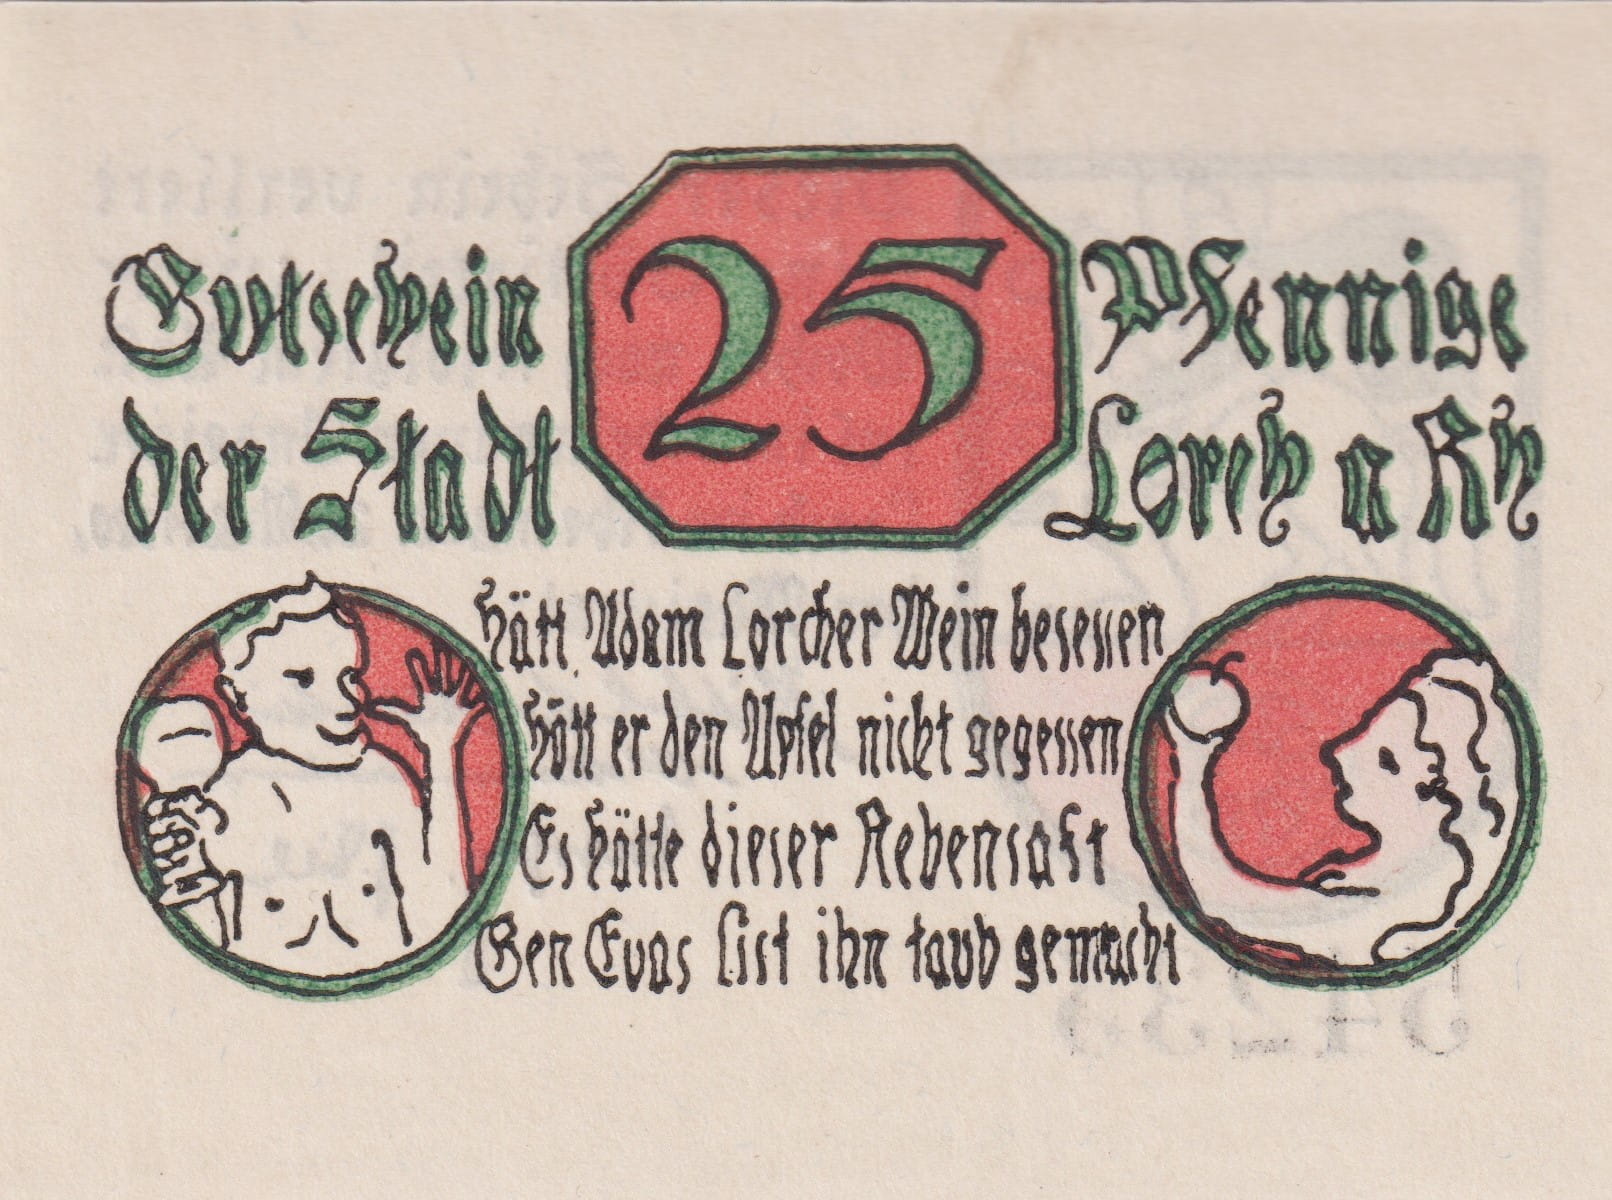 Gutschein 25 Pfennige
der Stadt Lorch a Rh
Hätt Adam Lorcher Wein besessen
Hätt er den Apfel nicht gegessen
Es hätte dieser Rebensaft
Gen Evas List ihn taub gemacht